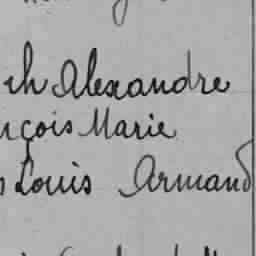 ch Alexandre
nçois Marie
Louis Armand